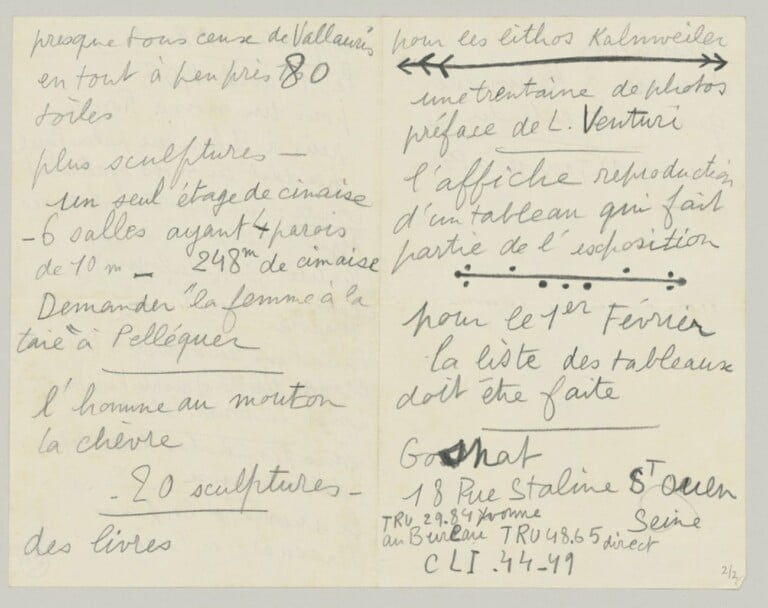 presque tous ceux de Vallauris
en tout à peu près 80
toiles
plus sculptures —
un seul étage de cimaise
- 6 salles ayant 4 parois
de 10 m — 248m de cimaise
Demander "la femme à la
taie" à Pelléquer
l'homme au mouton
la chèvre
- 20 sculptures -
des livres
pour les lithos Kahnweiler
une trentaine de photos
préface de L. Venturi
l'affiche reproduction
d'un tableau qui fait
partie de l'exposition
pour le 1er Février
la liste des tableaux
doit être faite
18 Rue Staline St Ouen
Seine
TRU 29.84 Yvonne
au Bureau TRU 48.65 direct
CLI.44-49
2/2